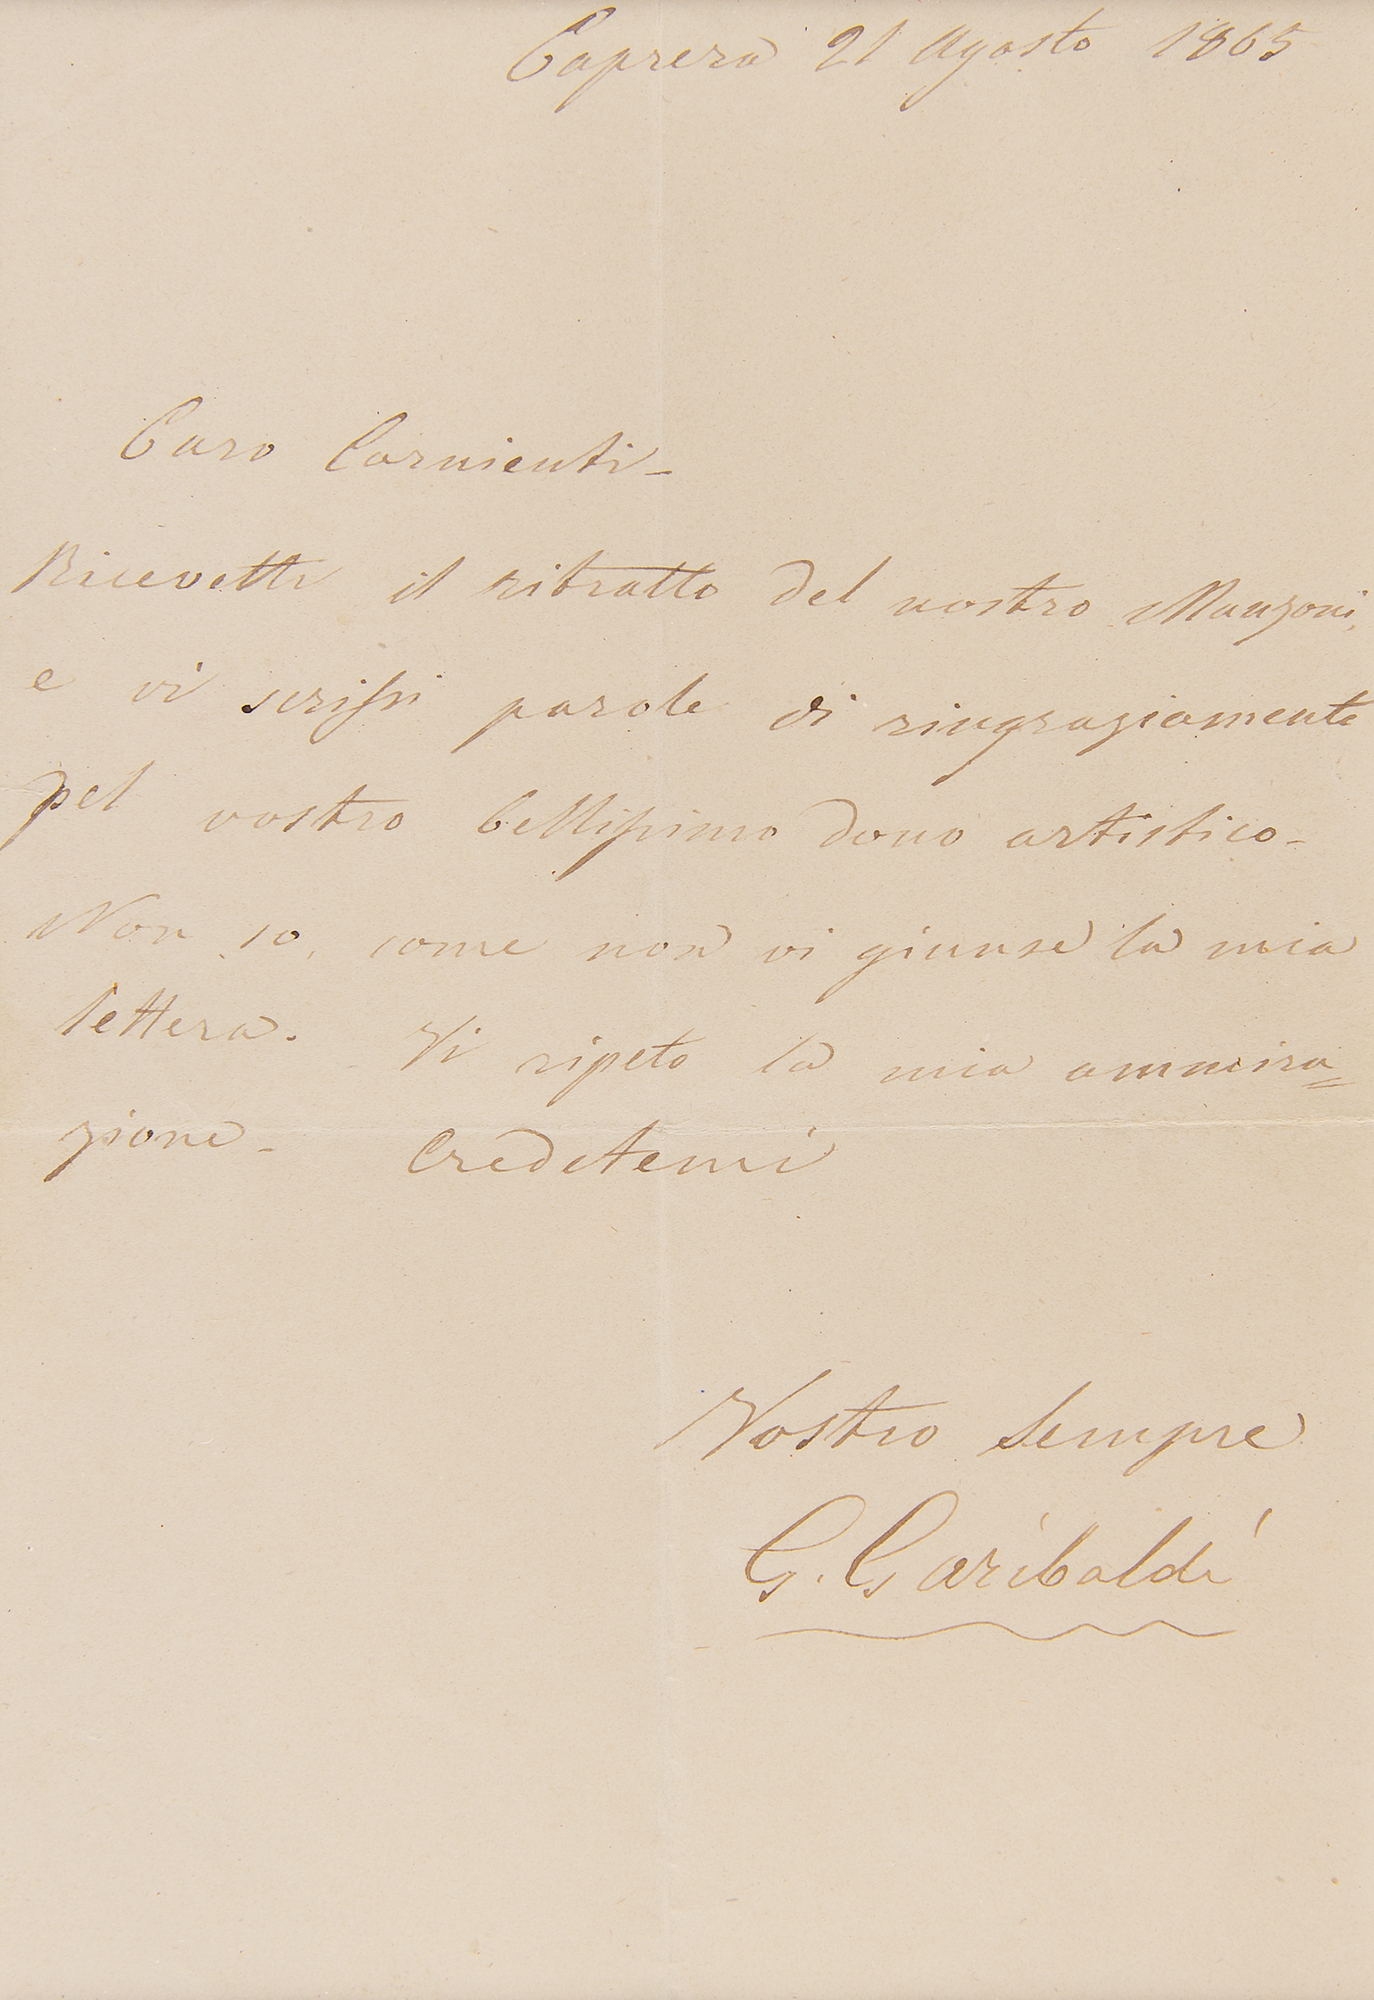 Caprera 21 Agosto 1865
Caro Cornienti-
Ricevetti il ritratto del nostro Manzoni,
e vi scrissi parole di ringraziamento
pel vostro bellissimo dono artistico-
Non so, come non vi giunse la mia
lettera. Vi ripeto la mia ammira=
zione- Credetemi
Vostro sempre
G. Garibaldi